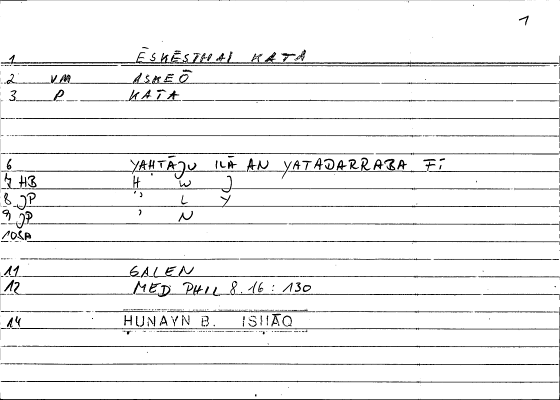 1
1 ĒSKĒSTHAI KATA
2 VM ASKEŌ
3 P KATA
6 YAḤTĀJU ILĀ AN YATADARRABA FĪ
7 HB Ḥ W J
8 JP ʾʾ L Y
9 JP ʾ N
10 SA
11 GALEN
12 MED PHIL 8.16 : 130
14 HUNAYN B. ISHĀQ